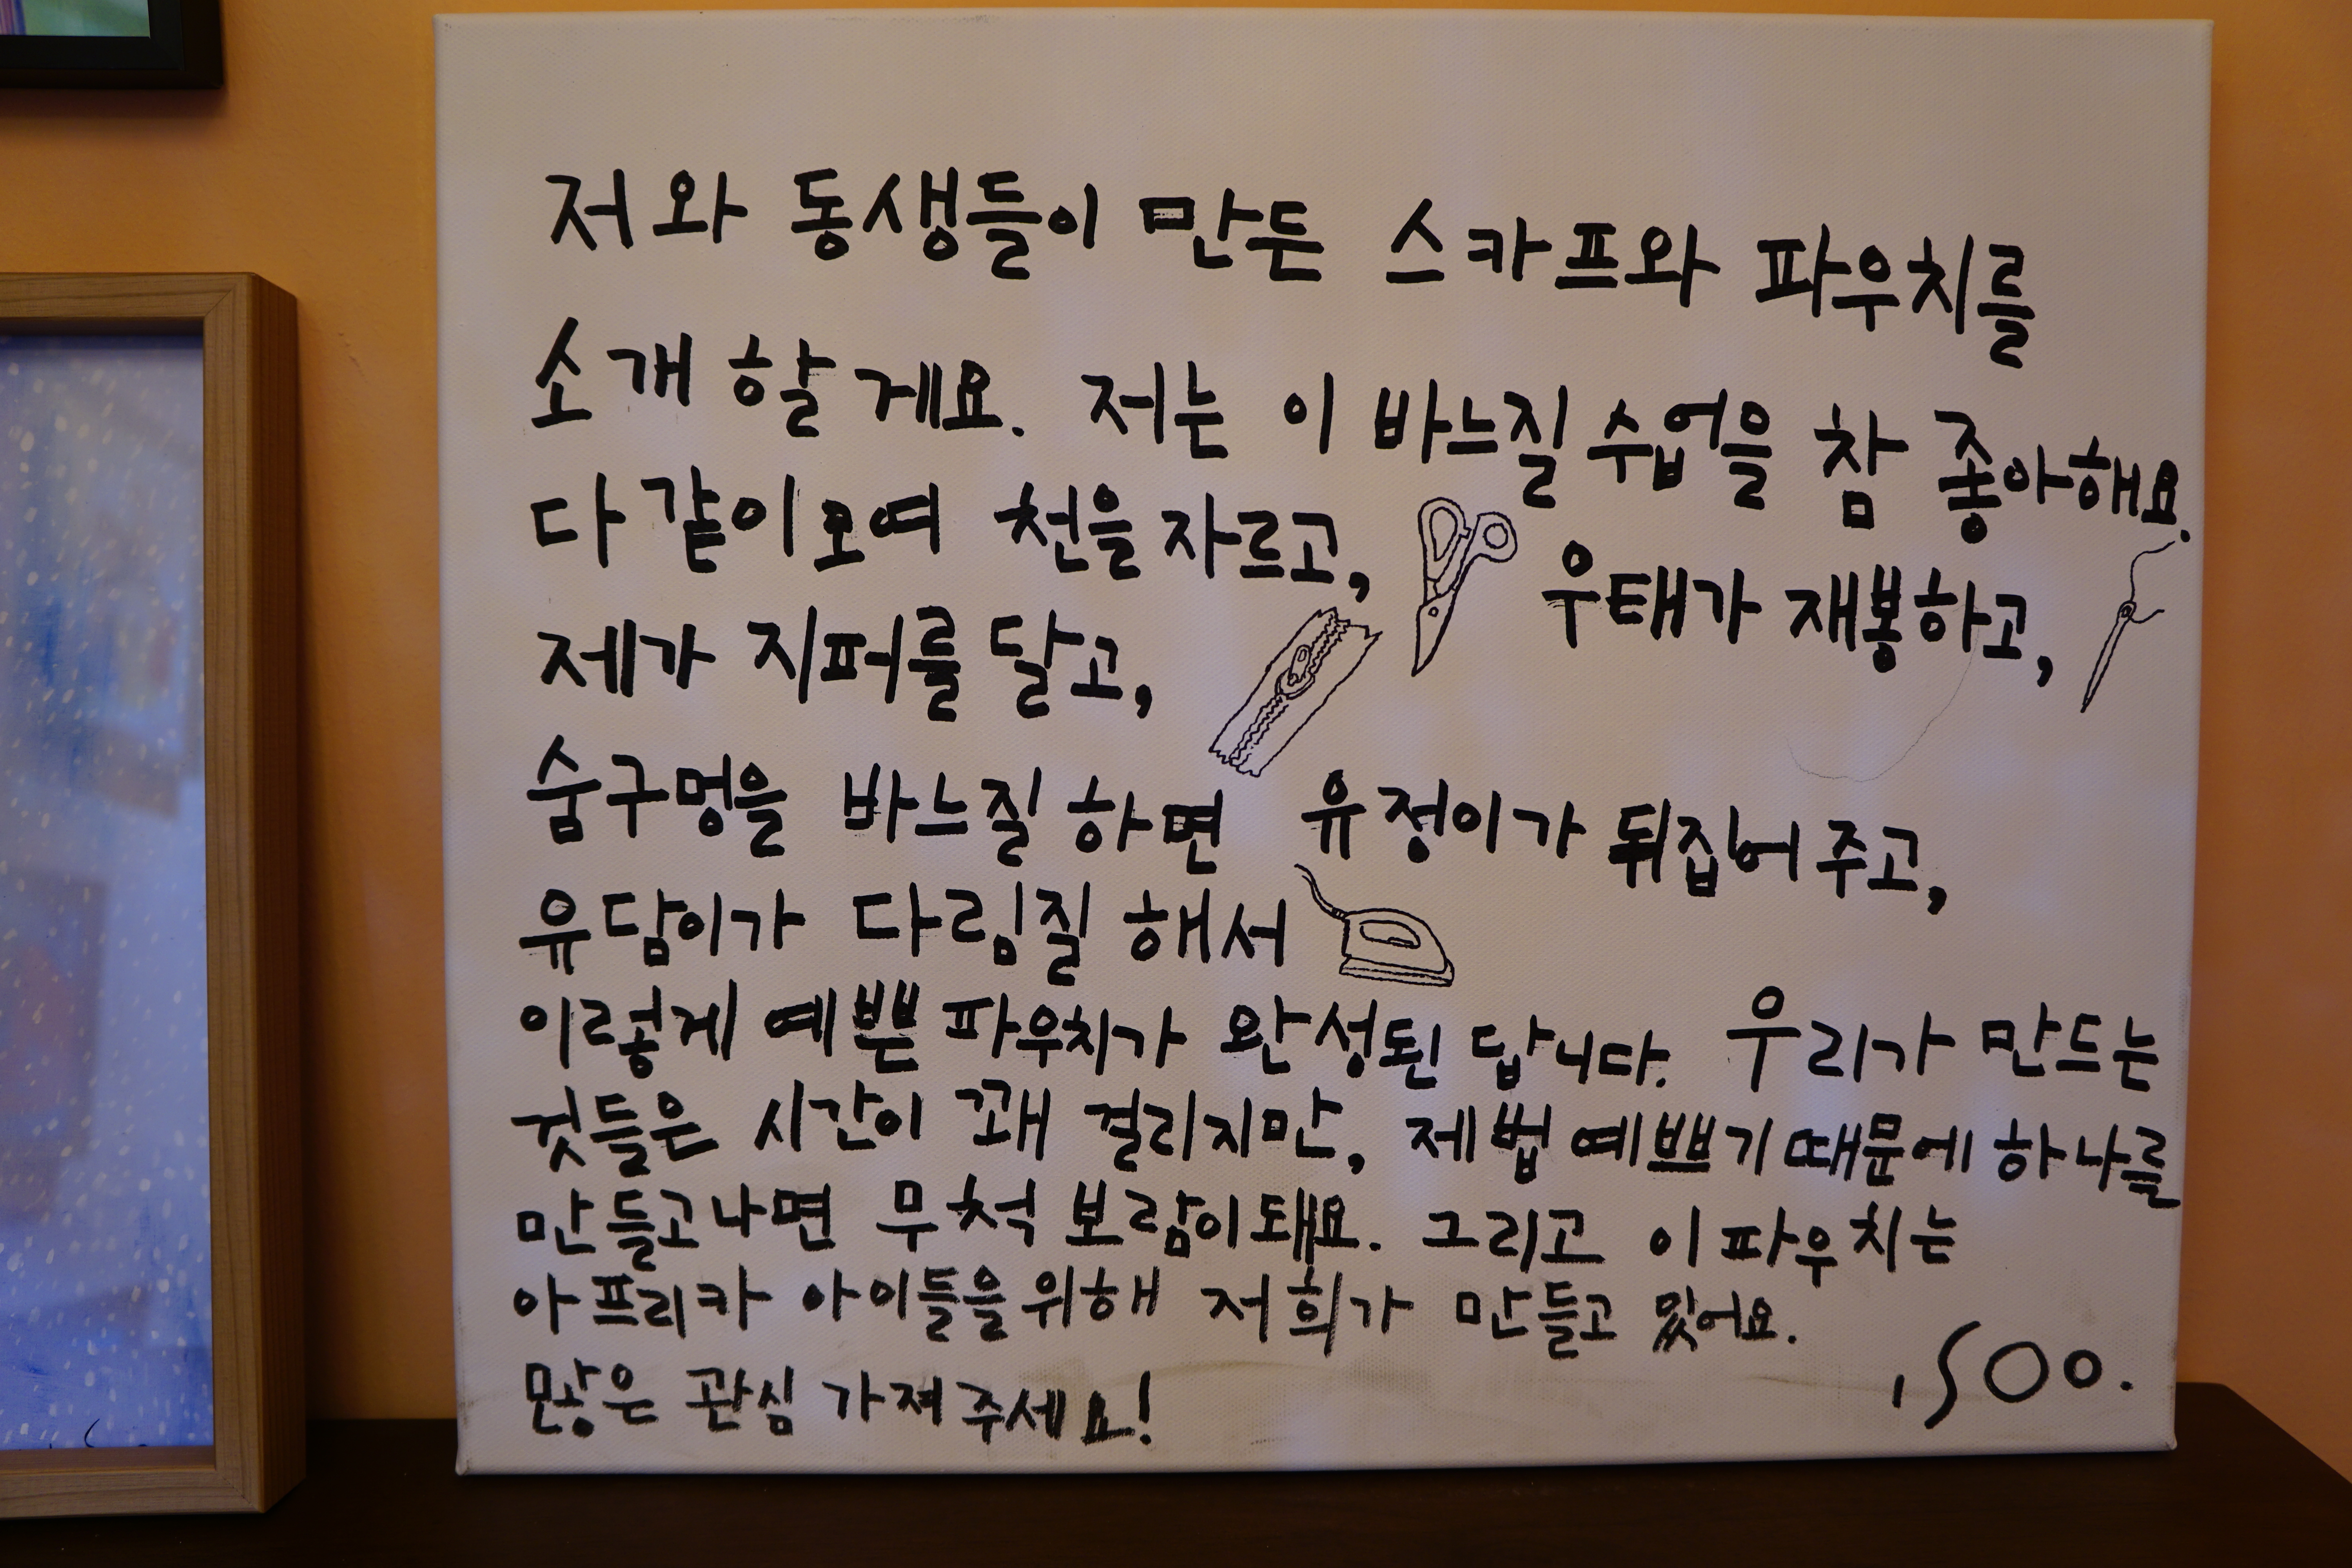 저와 동생들이 만든 스카프와 파우치를
소개 할게요. 저는 이 바느질 수업을 참 좋아해요.
다같이 모여 천을 자르고, 우태가 재봉하고,
제가 지퍼를 달고,
숨구멍을 바느질 하면 유정이가 뒤집어 주고,
유담이가 다림질 해서
이렇게 예쁜 파우치가 완성된 답니다. 우리가 만드는
것들은 시간이 꽤 걸리지만, 제법 예쁘기 때문에 하나를
만들고나면 무척 보람이 돼요. 그리고 이 파우치는
아프리카 아이들을 위해 저희가 만들고 있어요.
많은 관심 가져 주세요!